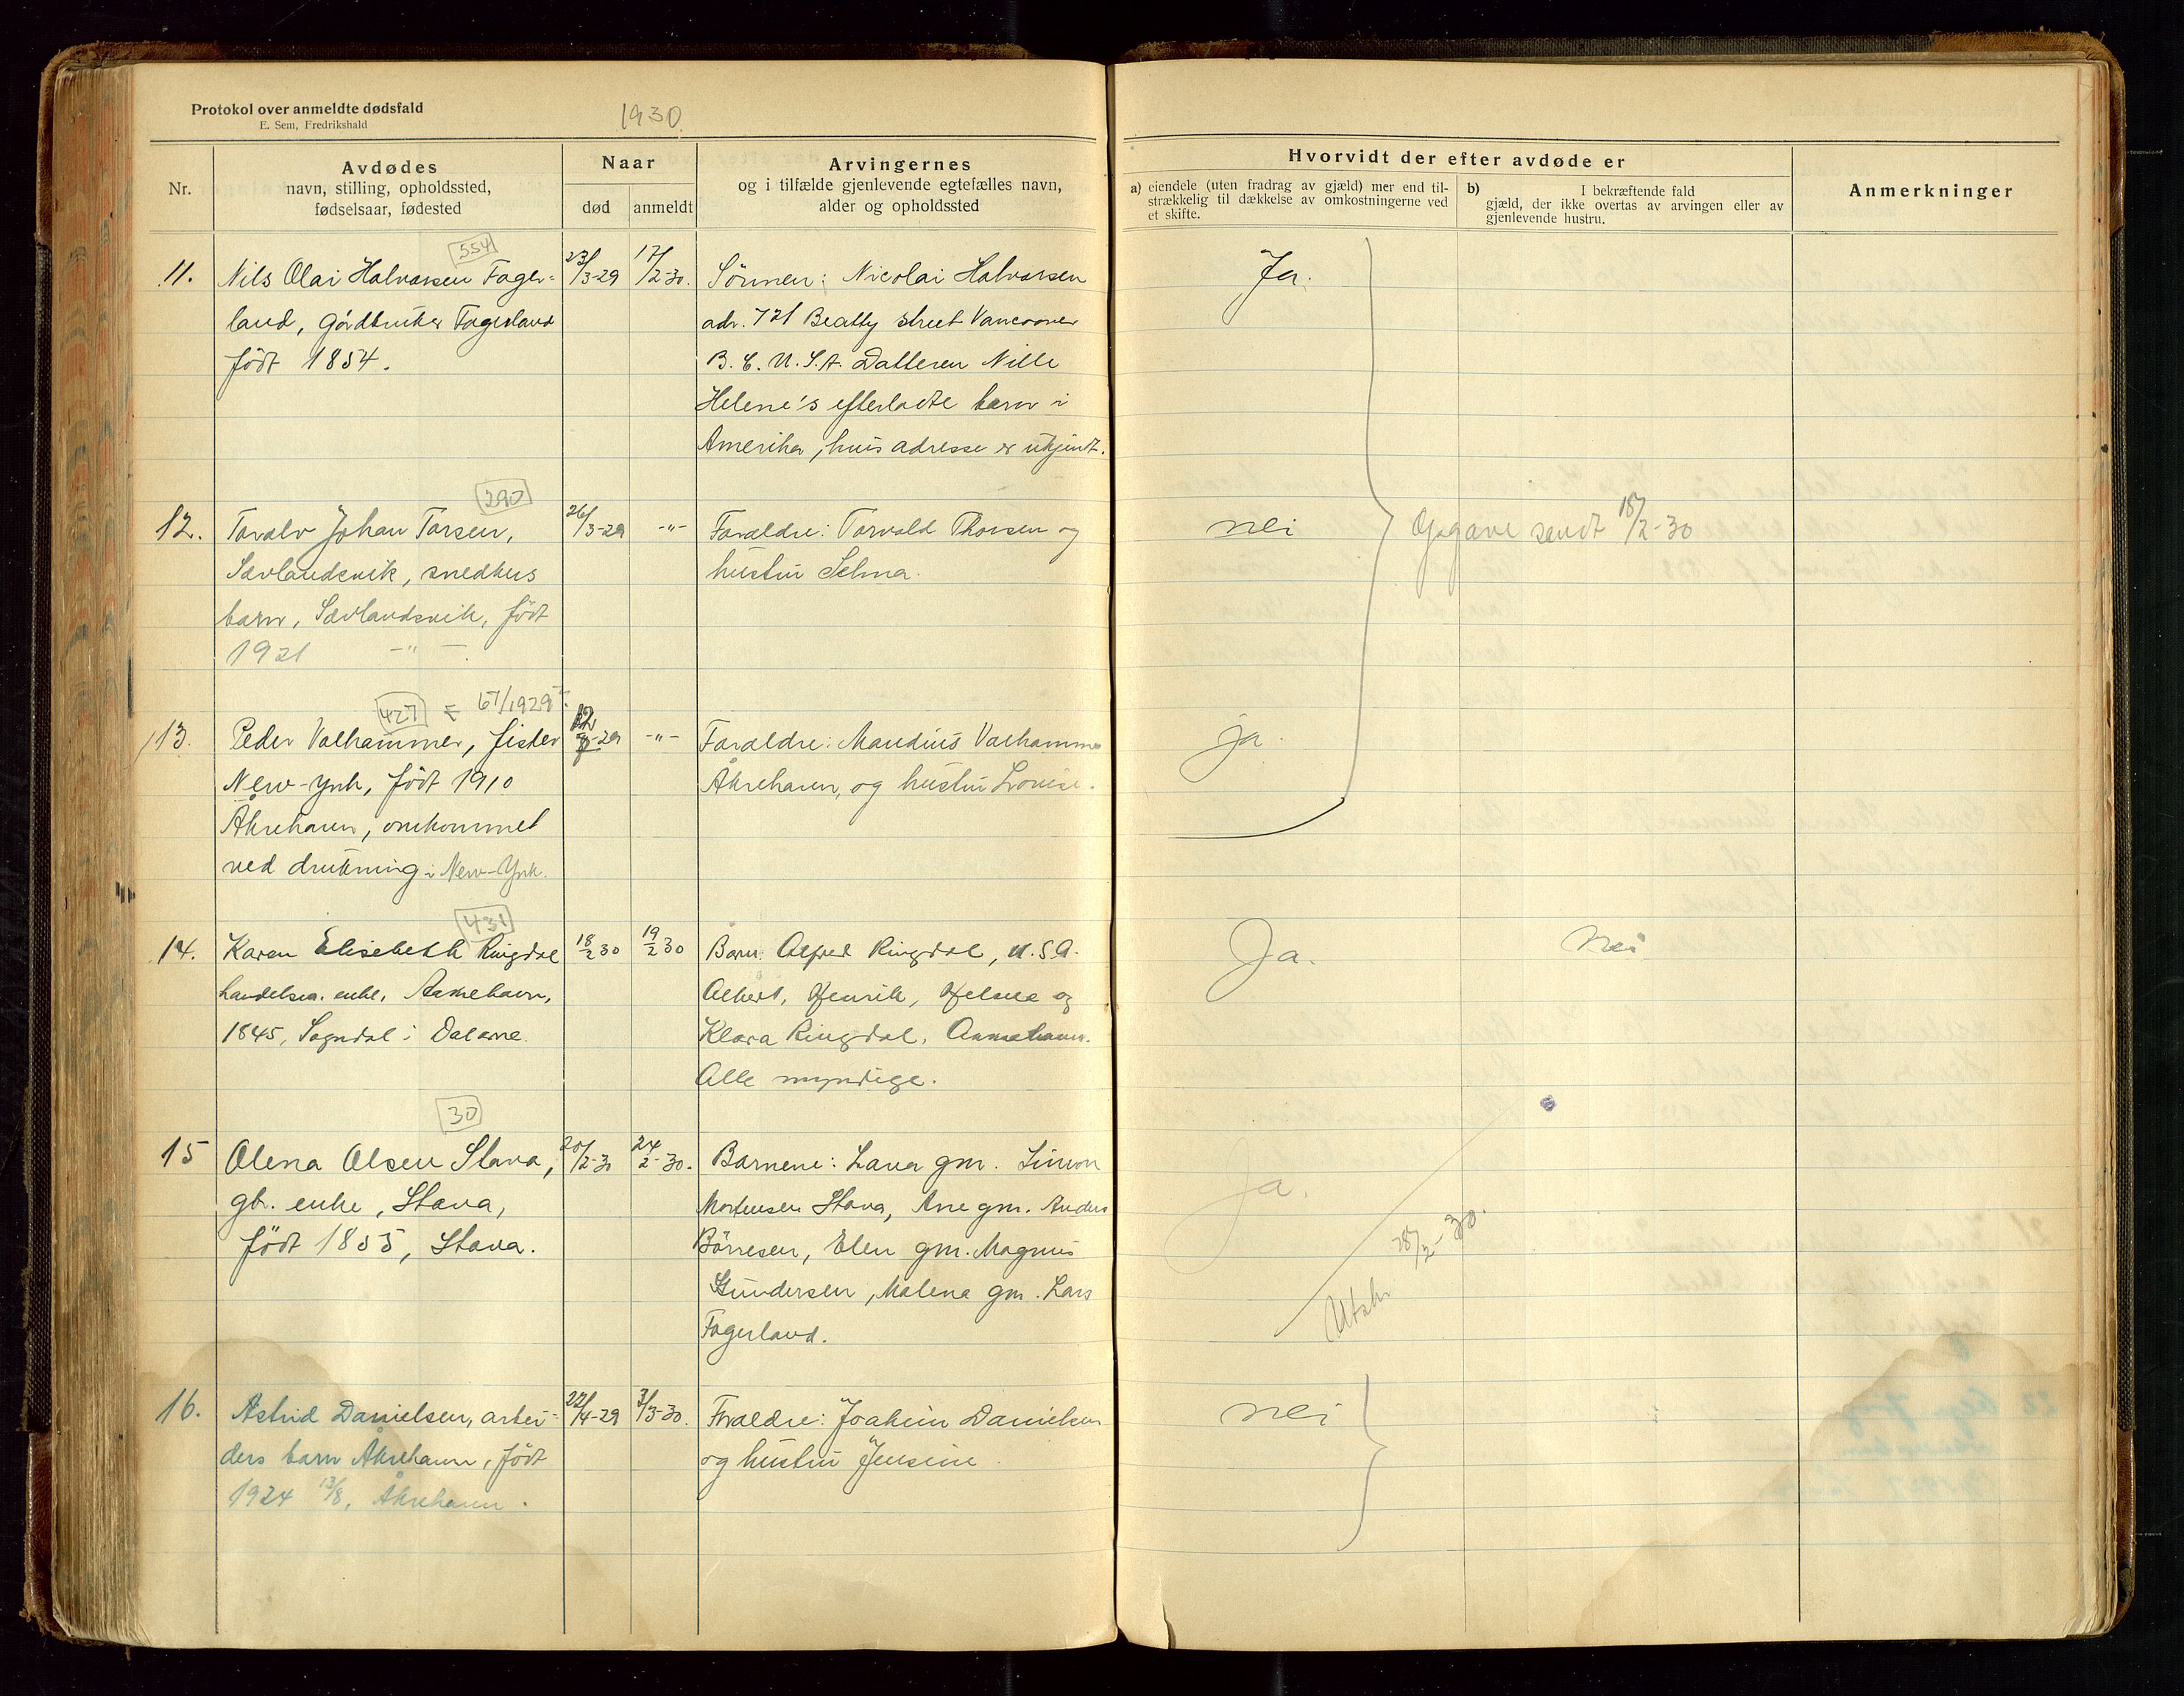 Protokol over anmeldte dødsfald
E. Sem, Fredrikshald
1930.
Nr.
Avdødes
navn, stilling, opholdssted,
fødselsaar, fødested
Naar
død
anmeldt
Arvingernes
og i tilfælde gjenlevende egtefælles navn,
alder og opholdssted
Hvorvidt der efter avdøde er
a) eiendele (uten fradrag av gjæld) mer end til-
strækkelig til dækkelse av omkostningerne ved
et skifte.
b) I bekræftende fald
gjæld, der ikke overtas av arvingen eller av
gjenlevende hustru.
Anmerkninger
554
11. Nils Olai Halvorsen Fager-
land, gårdbruker Fagerland
født 1854.
23/3-29
17/2-30.
Sönnen: Nicolai Halvorsen
adr. 721 Beatty street Vancouver
B. C. U. S. A. Datteren Nille
Helene's efterladte barn i
Amerika, hvis adresse er ukjendt.
Ja.
290
12. Toralv Johan Torsen,
Sævlandsvik, snedkers
barn, Sævlandsvik, født
1921 -"-
26/3-29
-"-
Foraldre: Torvald Thorsen og
hustru Selma.
nei
Opgave sendt 18/2-30
427 = 67/1929
13. Peder Valhammer, fisker
New-York, født 1910
Åkrehavn, omkommet
ved drukning i New-York.
-29
-"-
Foraldre: Mandius Valhammer
Åkrehavn, og hustru Lovise.
ja.
431
14. Karen Elisebeth Ringdal
handelsm. enke, Aakrehavn,
1845, Sogndal i Dalarne.
18/2 30
19/2 30
Barn: Alfred Ringdal, U.S.A.
Albert, Henrik, Helene og
Klara Ringdal, Aakrehavn.
Alle myndige.
Ja.
Nei
30
15 Olena Olsen Stava,
gb. enke, Stava,
født 1855, Stava.
20/2-30
24/2-30.
Barnene: Lava gm. Simon
Mortensen Stava, Ane gm. Anders
Börresen, Elen gm. Magnus
Gundersen, Malena gm. Lars
Fagerland.
Ja.
Utskr. 28/2-30.
16. Astrid Danielsen, arbei-
ders barn Åkrehavn, født
1924 13/8, Åkrehavn.
22/4-29
3/3-30.
Foraldre: Joakim Danielsen
og hustru Jensine.
nei